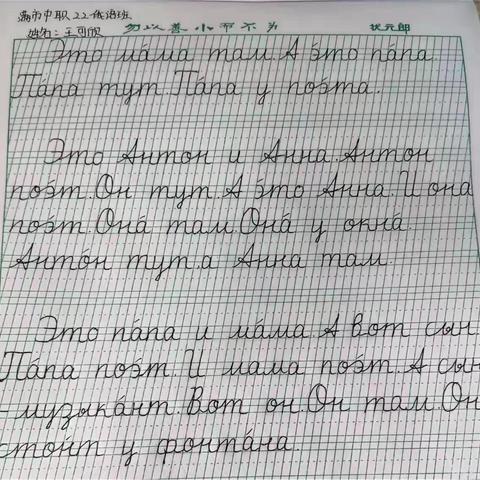 满市中职22俄语班
勿以善小而不为
状元郎
姓名:王可欣
Это ма́ма там. А э́то па́па.
Па́па тут. Па́па у поэ́та.
Это Антон и Анна. Антон
поэ́т. Он тут. А э́то Анна. И она
поэ́т. Она́ там. Она́ у окна́.
Анто́н тут, а Анна там.
Это па́па и ма́ма. А вот сын.
Па́па поэ́т. И мама поэ́т. А сын
-музыка́нт. Вот он. Он там. Он
стои́т у фонта́на.